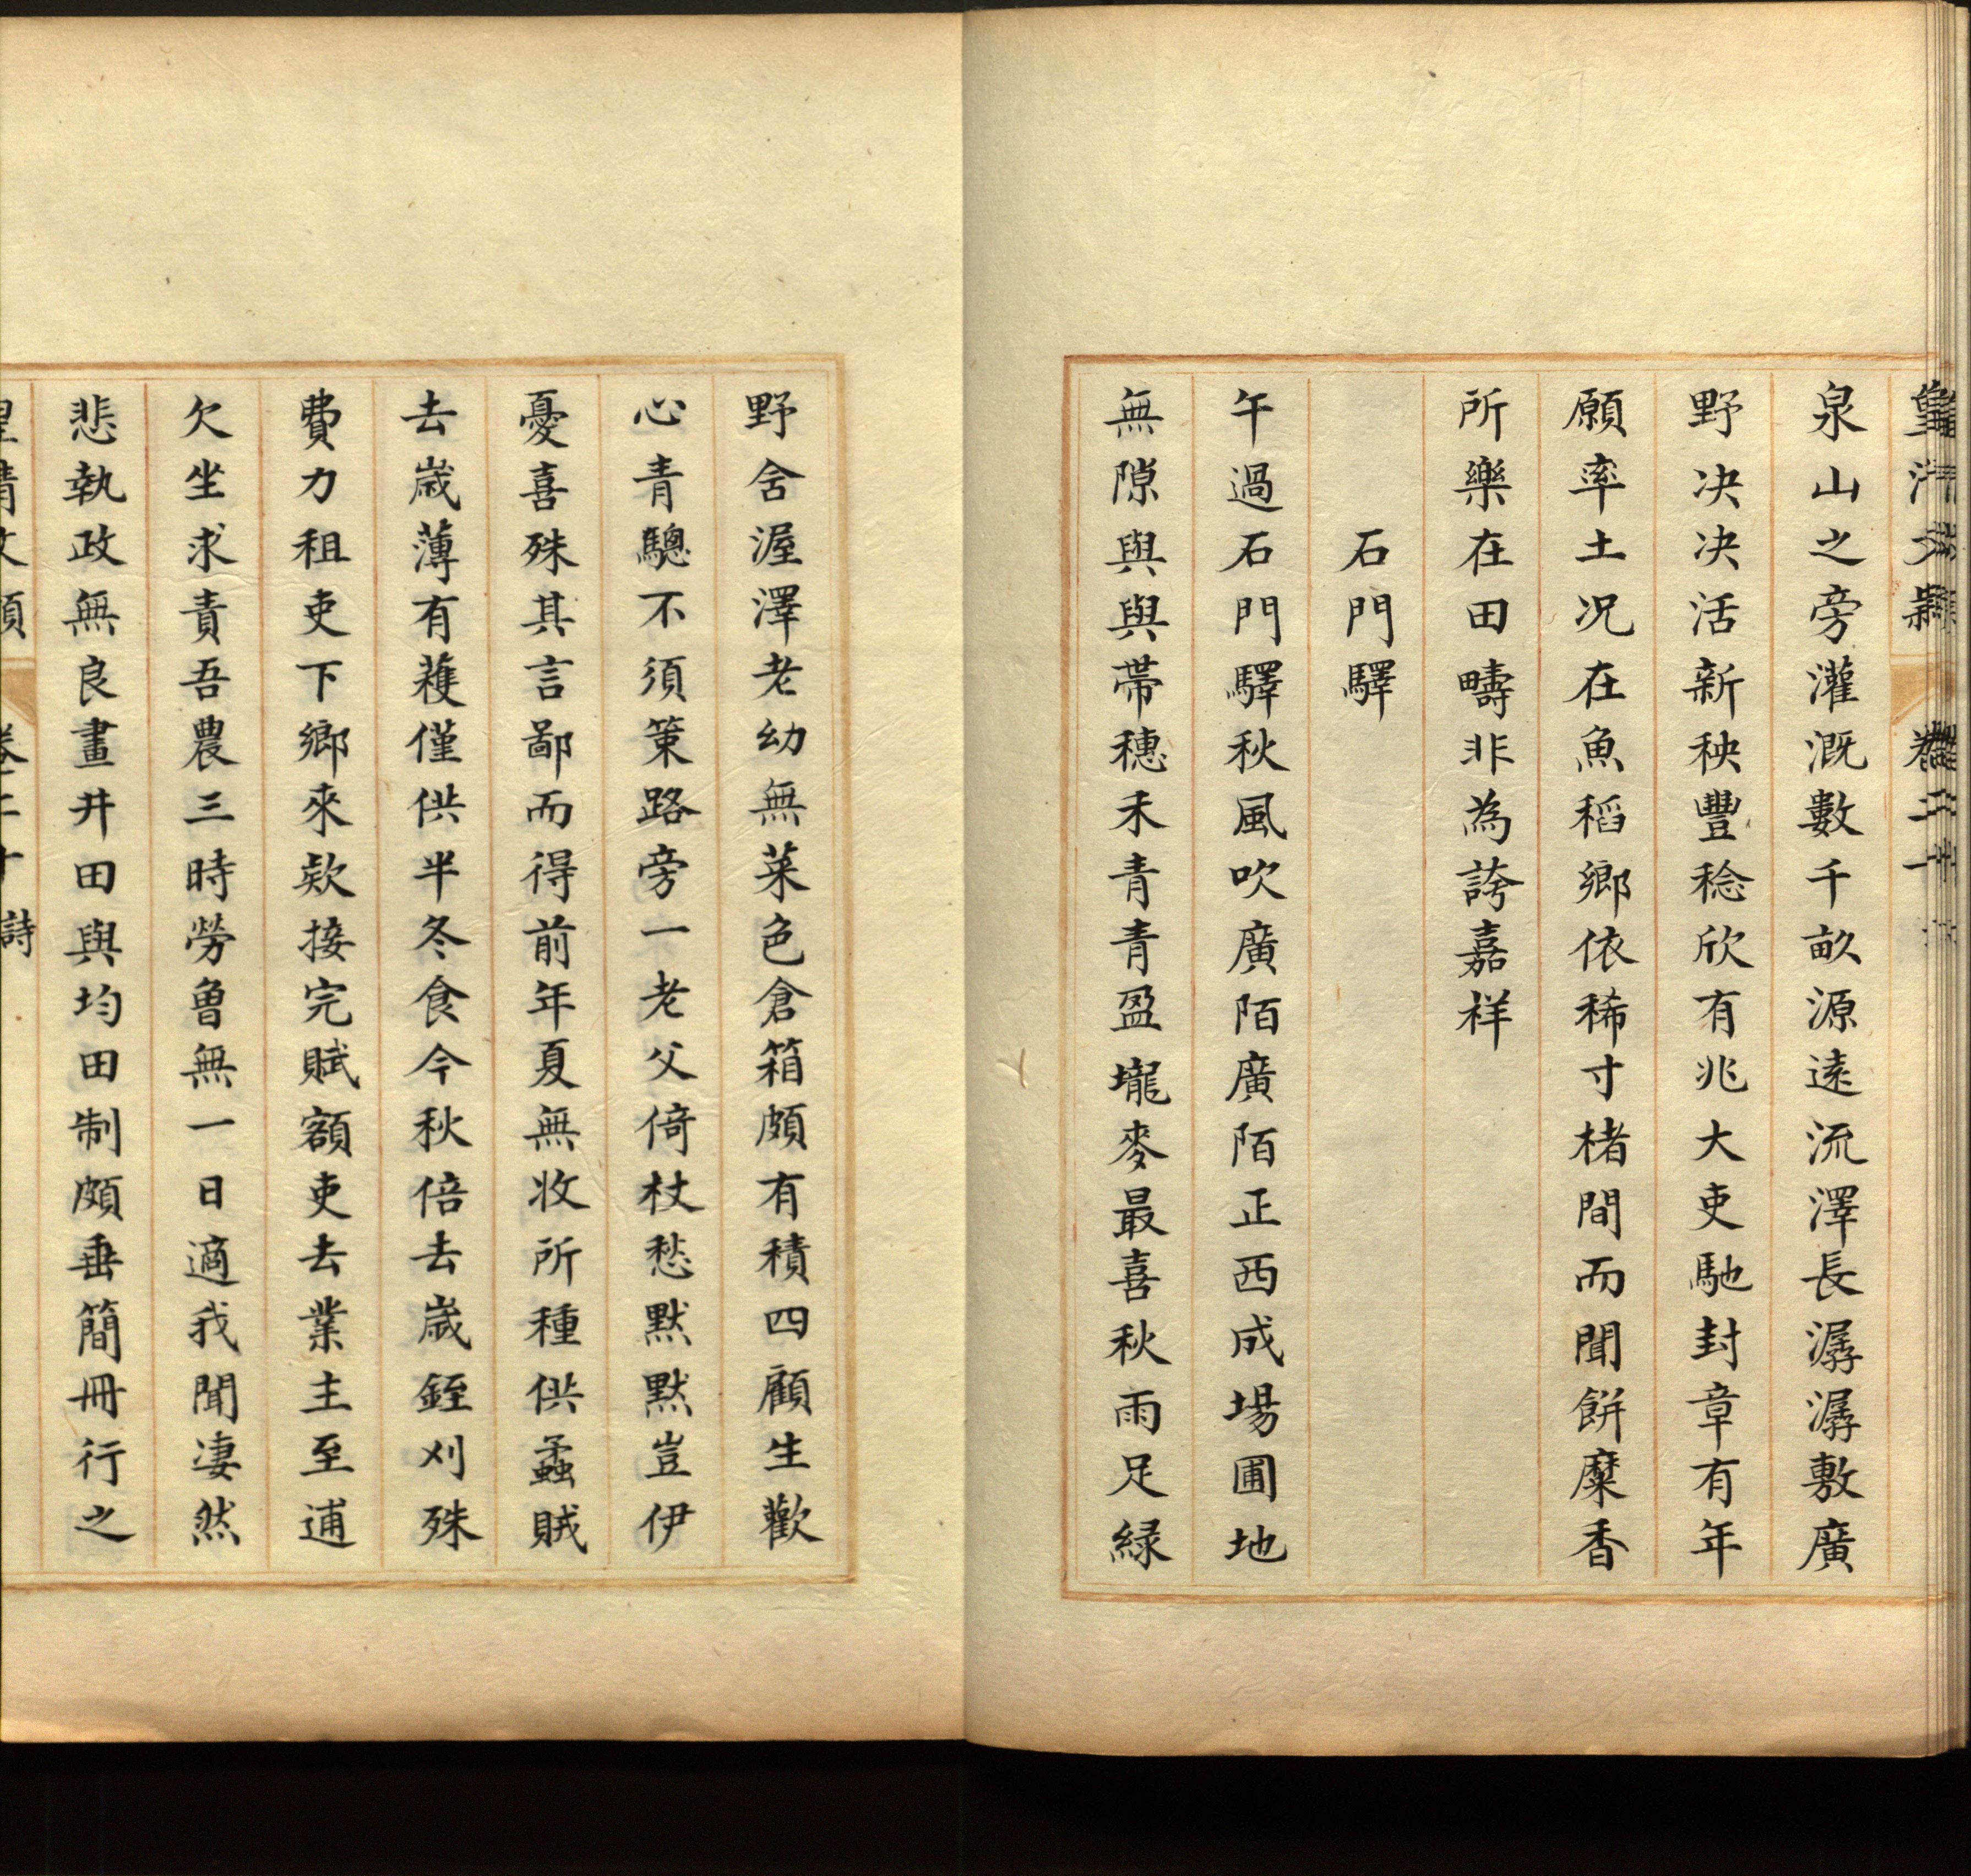 泉山之旁灌溉數千畝源遠流澤長潺潺敷廣
野决决活新秧豐稔欣有兆大吏馳封章有年
願率土况在魚稻鄉依稀寸楮間而聞餅糜香
所樂在田疇非為誇嘉祥
石門驛
午過石門驛秋風吹廣陌廣陌正西成場圃地
無隙與與帶穗禾青青盈壠麥最喜秋雨足緑
野舍渥澤老幼無菜色倉箱頗有積四顧生歡
心青驄不須策路旁一老父倚杖愁默默豈伊
憂喜殊其言鄙而得前年夏無收所種供蟊賊
去歲薄有穫僅供半冬食今秋倍去歲銍刈殊
費力租吏下鄉來欵接完賦額吏去業主至逋
欠坐求責吾農三時勞曾無一日適我聞淒然
悲執政無良畫井田與均田制頗垂簡冊行之
皇清文頴 卷二十 詩